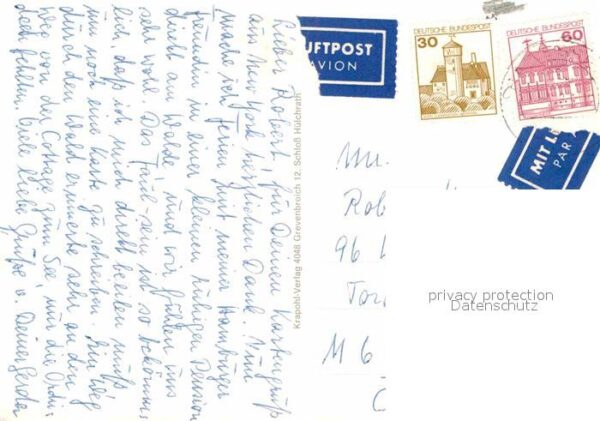 Lieber Robert, für Deinen Kartengruß
aus New York herzlichen Dank. Nun
mache ich Ferien mit meiner Hamburger
Freundin in einer kleinen ruhigen Pension
direkt am Walde und wir fühlen uns
sehr wohl. Das ist so
lich, daß ich mich direkt beeilen muß
nun noch eine Karte zu schreiben. Ein Weg
durch den Wald erinnerte sehr an den
Weg von der Cottage zum See nur die
fehlen. Viele liebe Grüße v. Deiner Gerda
Krapohl-Verlag 4048 Grevenbroich 12. Schloß Hülchrath
LUFTPOST
AVION
DEUTSCHE BUNDESPOST
30
DEUTSCHE BUNDESPOST
60
MIT LU
PAR
Mr.
Rob
96
Tor
M 6
C
privacy protection
Datenschutz